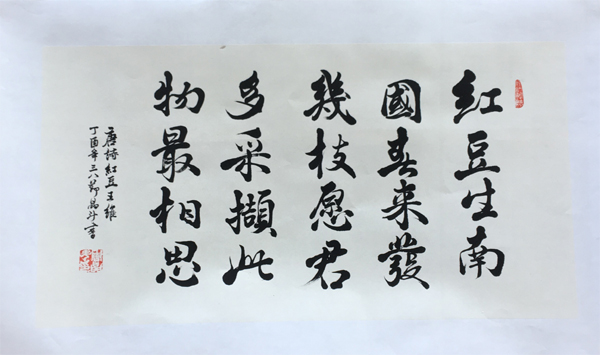 紅豆生南
國春来發
幾枝愿君
多采擷此
物最相思
唐詩紅豆王維
丁酉年三八節